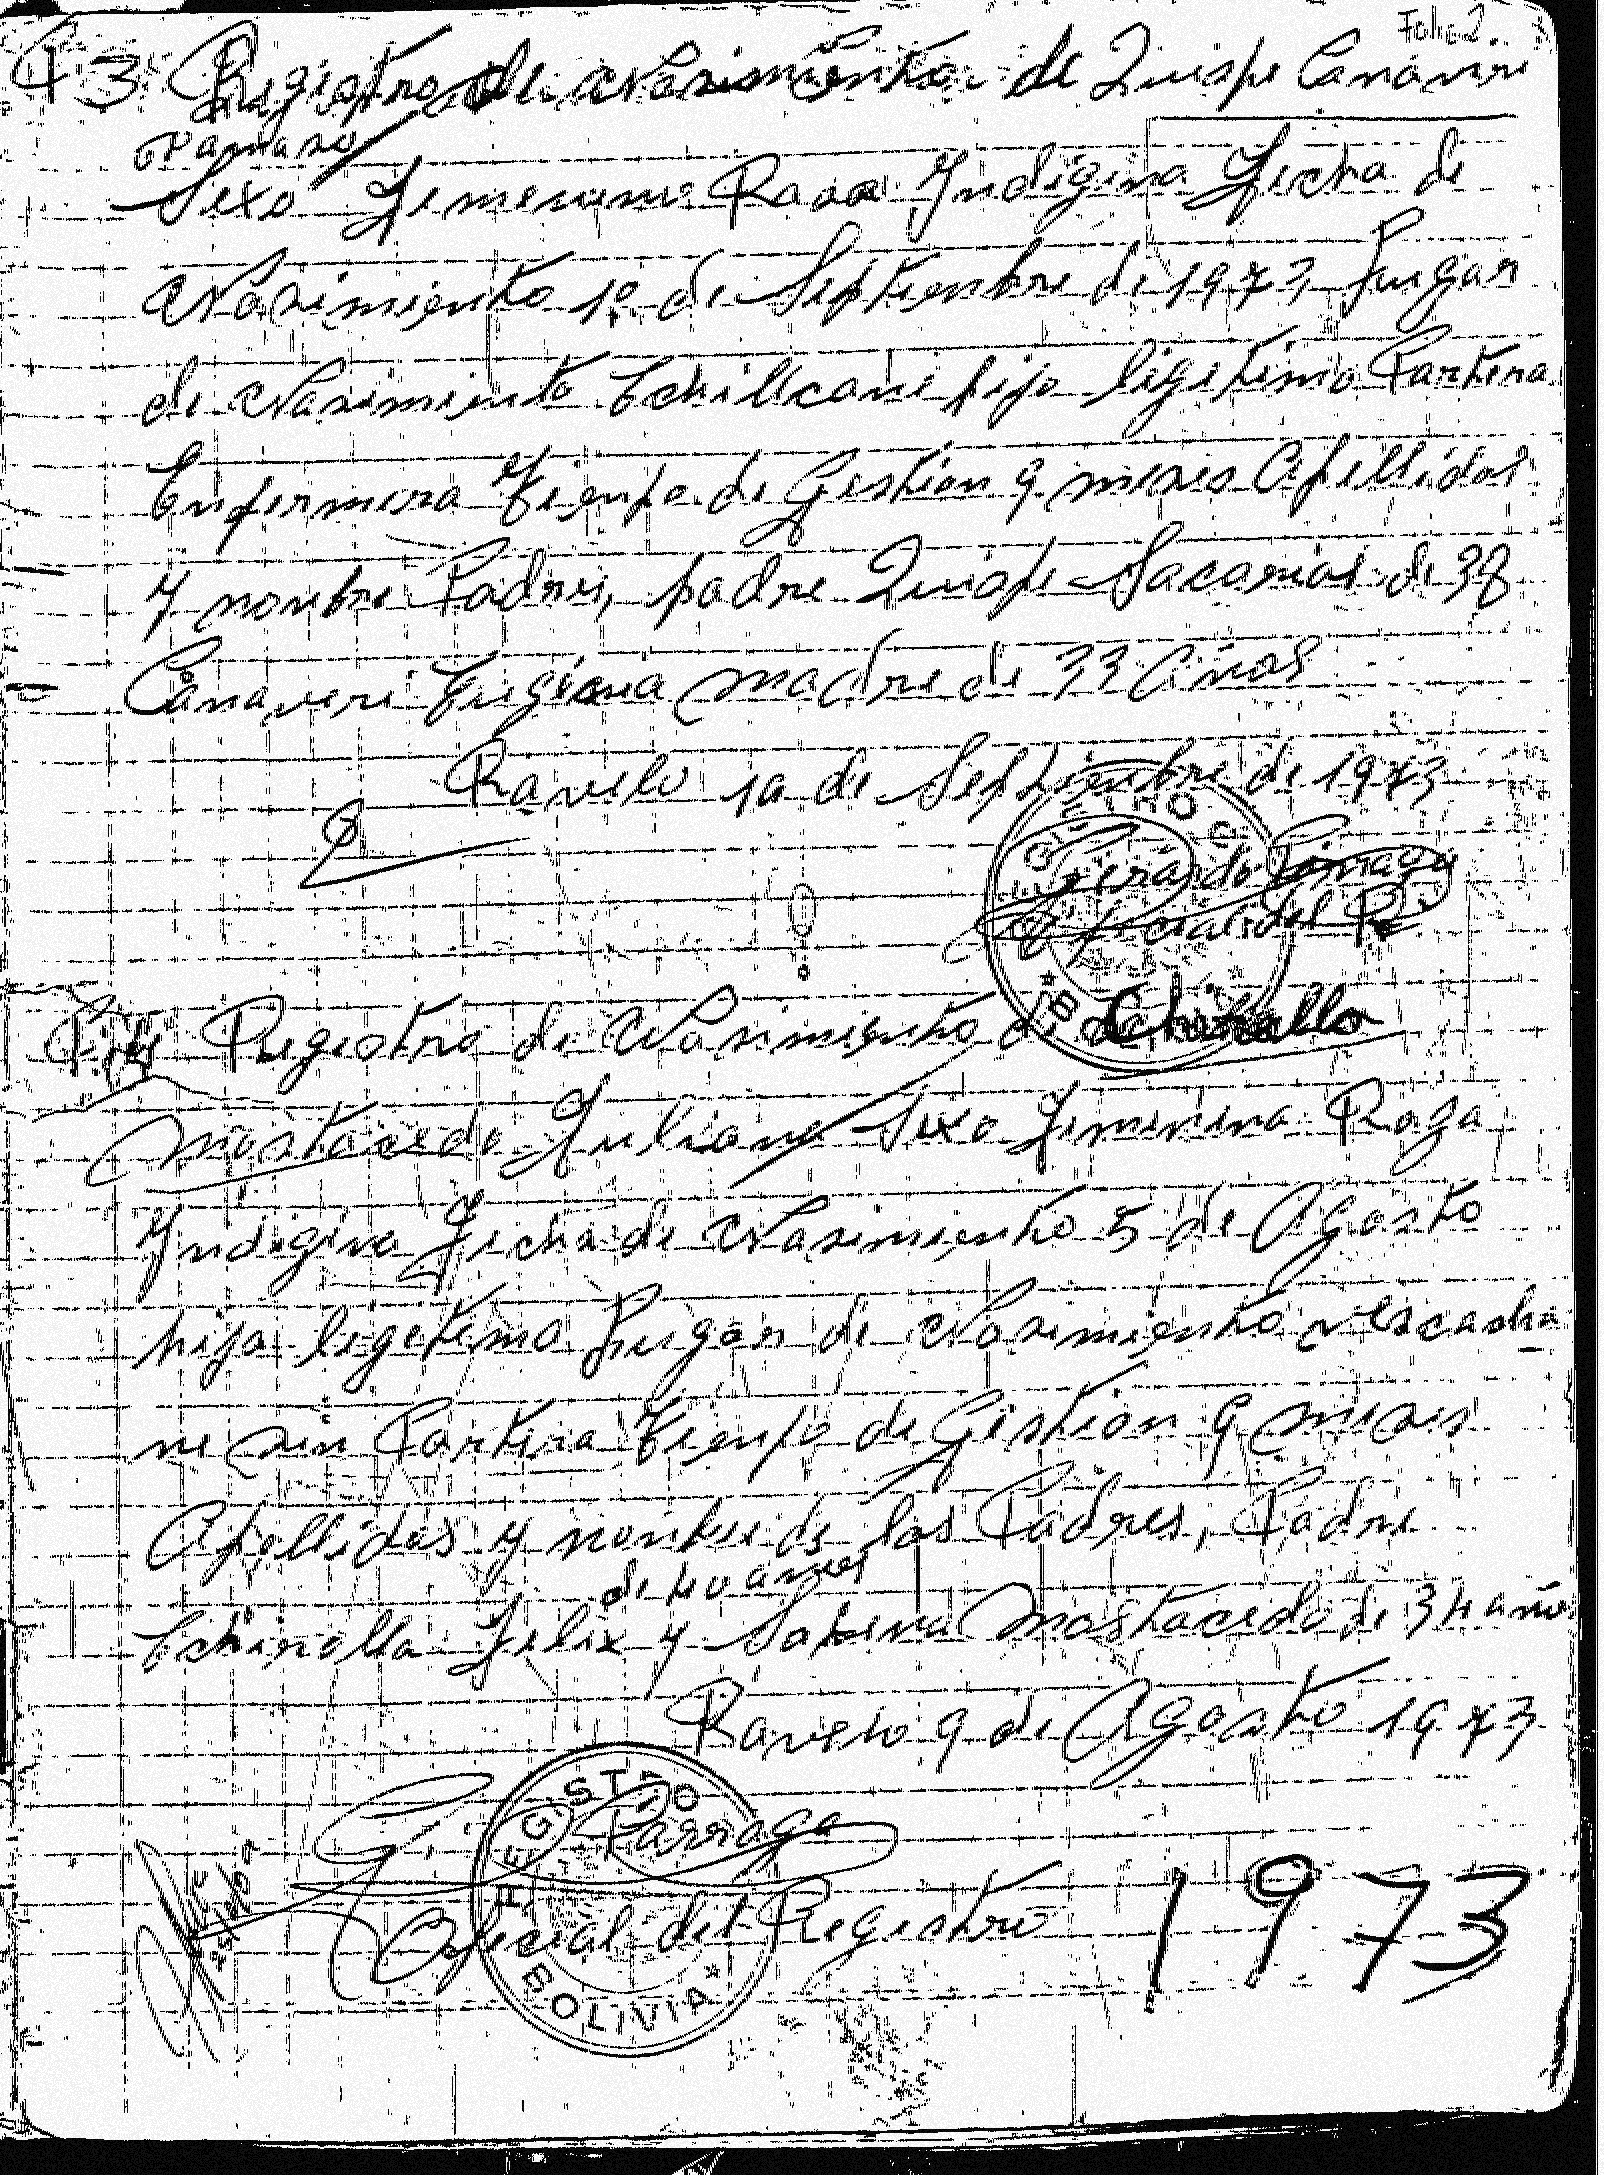 Folio 2.
P 3 Registro de Nasimiento de Quispe Canaviri
Sexo Femenino Raaa Indigina Fecha de
Nasimiento 1o de Septiembre de 1973 Lugar
de Nasimiento Chillcani hijo ligetimo Partera
Enfermera Tienpo de Gestion 9 meses Apellidos
y nonbre Padres, padre Quispe Sacarias de 38
Canaveri Eugenia madre de 33 Años
Ravelo 10 de Septienbre de 1973
Gerardo Parraga
Oficial del R
REGISTRO C
Pt 4 Registro de Nasimiento de Chirallo
Mostacedo Juliana Sexo Femenino Raza
Indigina Fecha de Nasimiento 5 de Agosto
hija ligetima Lugar de Nasimiento Vescacha
ne sin Partera Tienpo de Gestion 9 meses
Apellidos y nonbre de los Padres, Padre
de 40 años
Chirolla Felix y Sabina Mostacedo de 34 años
Ravelo 9 de Agosto 1973
G. Parraga
Oficial del Registro
REGISTRO
BOLIVIA
1973